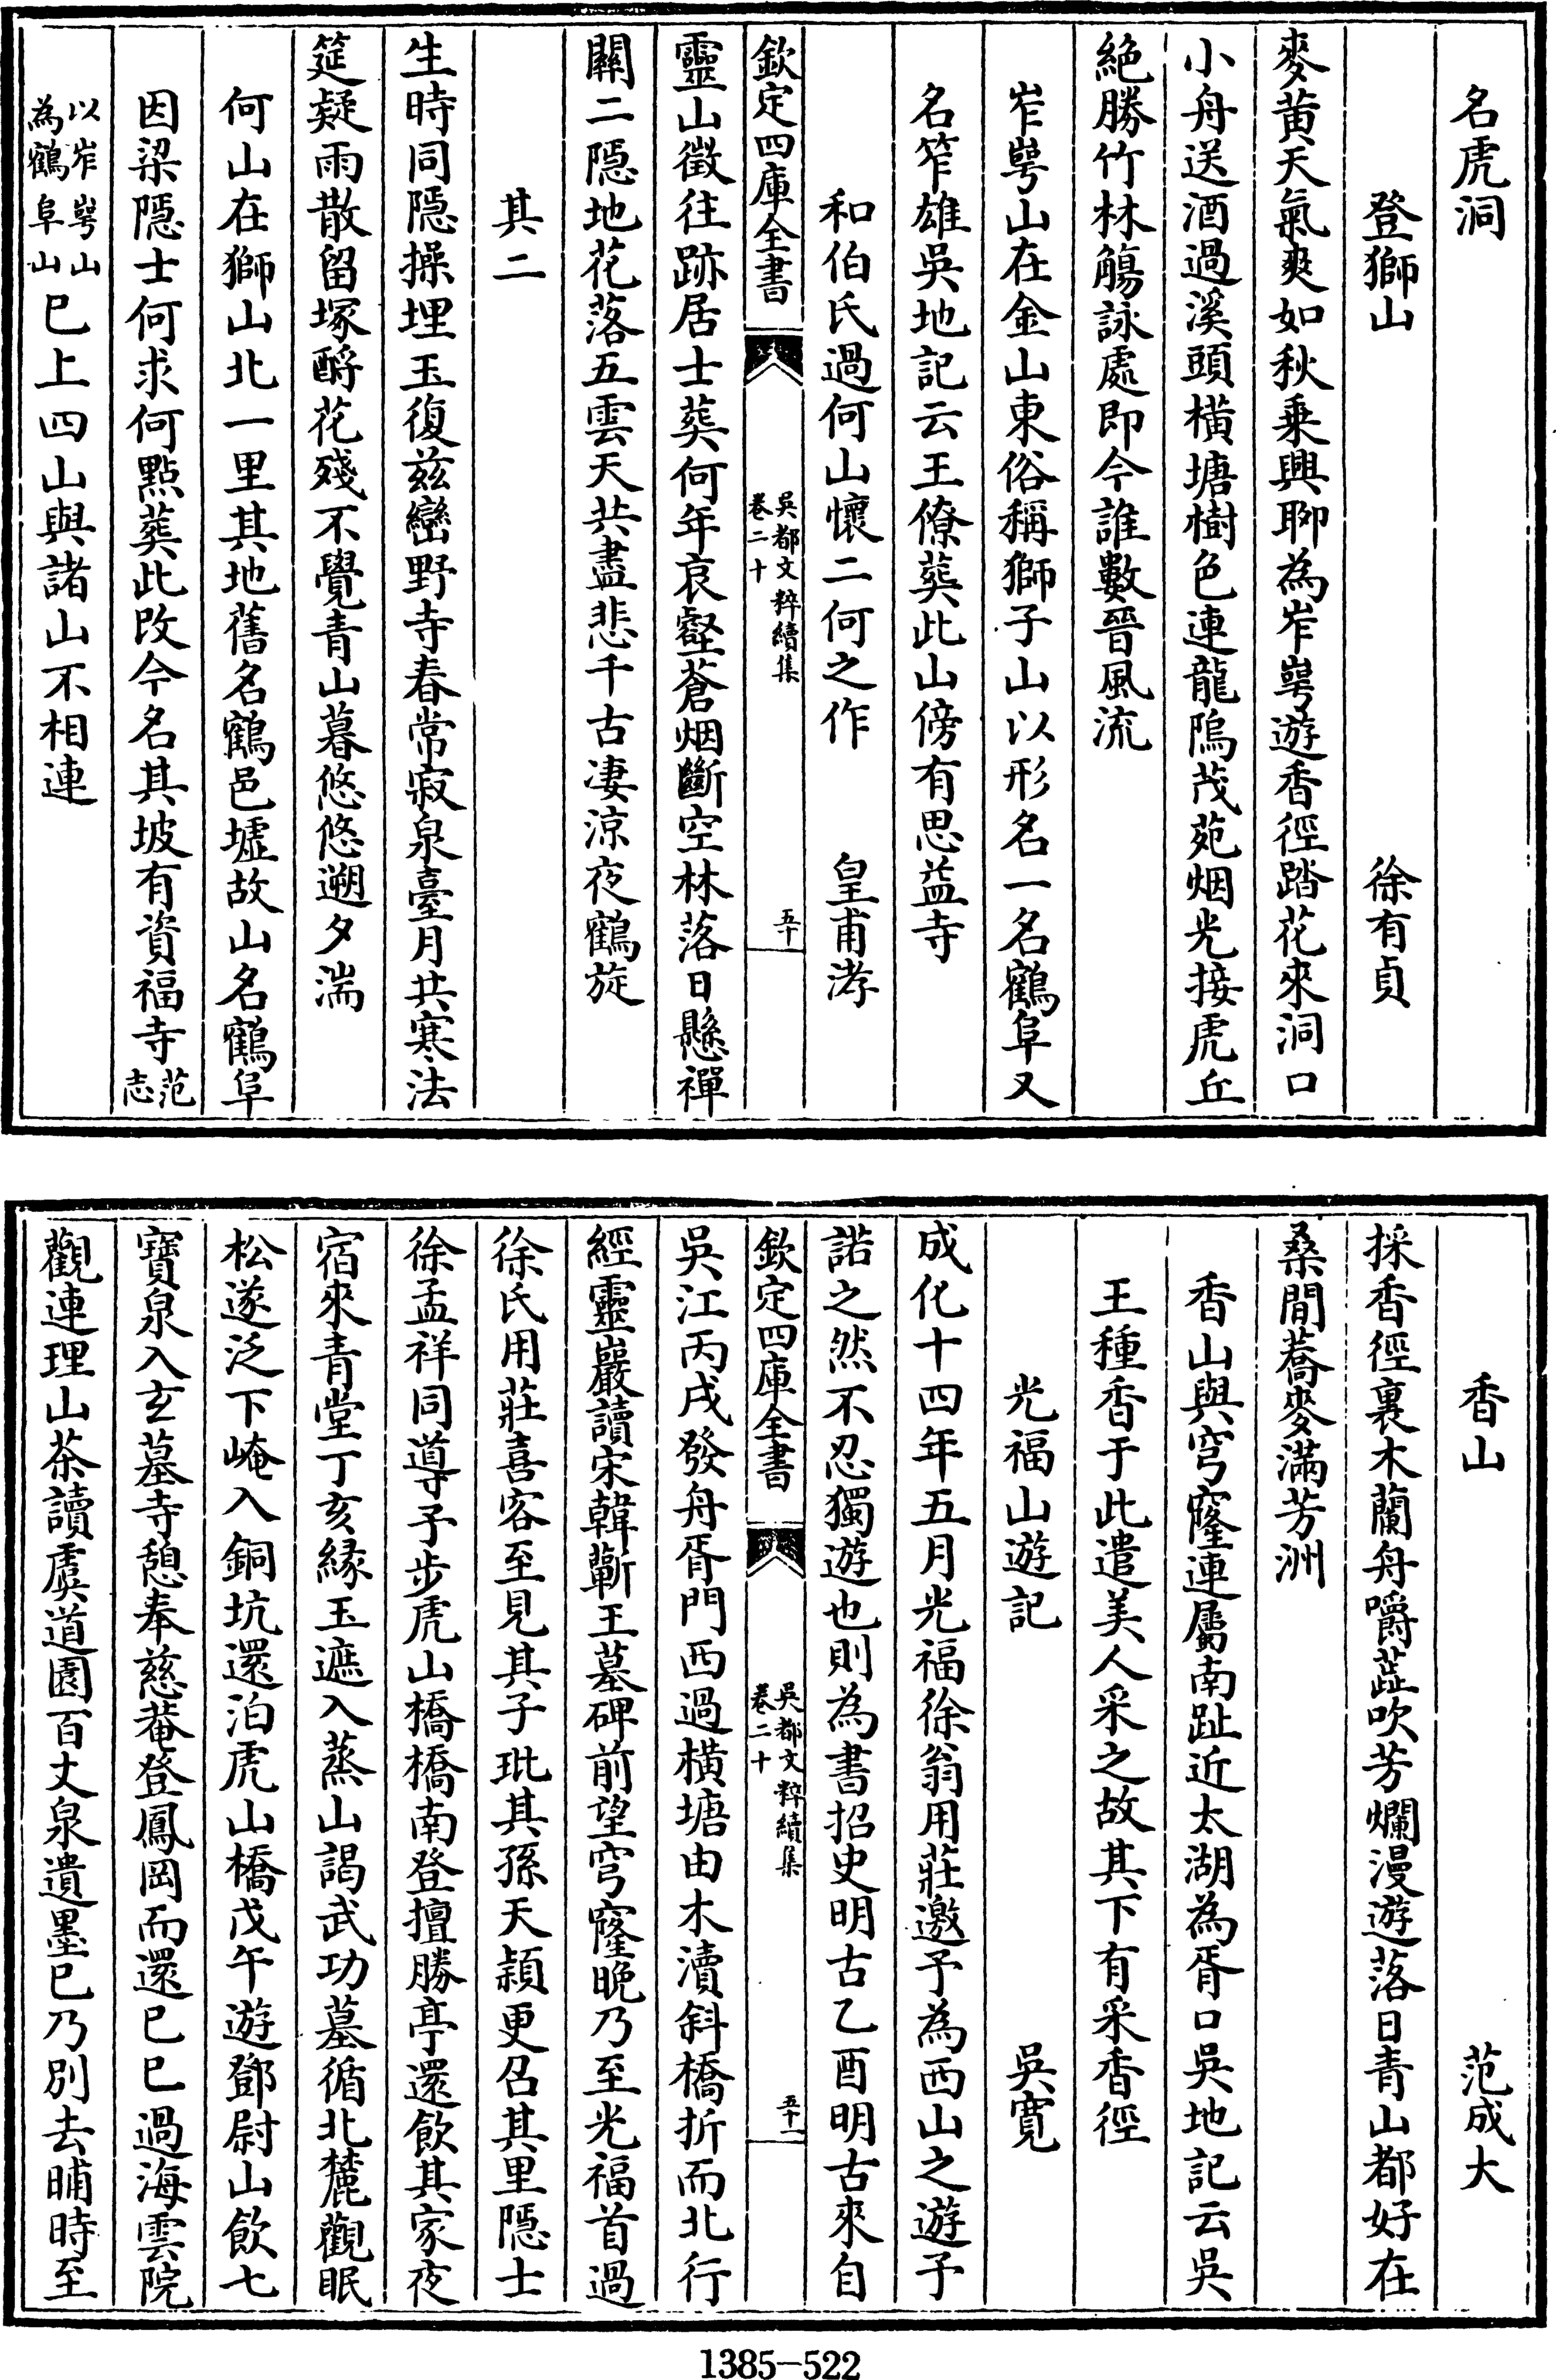 名虎洞
登獅山　徐有貞
麥黄天氣爽如秋乗興聊為岝崿遊香徑踏花來洞口
小舟送酒過溪頭橫塘樹色連龍隖茂苑烟光接虎丘
絶勝竹林觴詠處即今誰數晉風流
岝崿山在金山東俗稱獅子山以形名一名鶴阜又
名笮雄吳地記云王僚葬此山傍有思益寺
和伯氏過何山懷二何之作　皇甫涍
欽定四庫全書
吳都文粹續集
卷二十
五十
靈山徵往跡居士葬何年哀壑蒼烟斷空林落日懸禪
關二隠地花落五雲天共盡悲千古凄涼夜鶴旋
其二
生時同隠操埋玉復兹巒野寺春常寂泉臺月共寒法
筵疑雨散留塚酹花殘不覺青山暮悠悠遡夕湍
何山在獅山北一里其地舊名鶴邑墟故山名鶴阜
因梁隠士何求何㸃葬此改今名其坡有資福寺范志
以岝崿山為鶴阜山巳上四山與諸山不相連
香山　范成大
採香徑裏木蘭舟嚼蕋吹芳爛漫遊落日青山都好在
桑間蕎麥滿芳洲
香山與穹窿連屬南趾近太湖為胥口吳地記云吳
王種香于此遣美人采之故其下有采香徑
光福山遊記　吳寛
成化十四年五月光福徐翁用莊邀予為西山之遊予
諾之然不忍獨遊也則為書招史明古乙酉明古來自
欽定四庫全書
吳都文粹續集
卷二十
五十一
吳江丙戌發舟胥門西過横塘由木瀆斜橋折而北行
經靈巖讀宋韓蘄王墓碑前望穹窿晚乃至光福首過
徐氏用莊喜客至見其子玭其孫天頴更召其里隠士
徐孟祥同導予步虎山橋橋南登擅勝亭還飲其家夜
宿來青堂丁亥縁玉遮入蒸山謁武功墓循北麓觀眠
松遂泛下崦入銅坑還泊虎山橋戊午遊鄧尉山飲七
寶泉入玄墓寺憩奉慈菴登鳳岡而還巳巳過海雲院
觀連理山茶讀虞道園百丈泉遺墨巳乃別去晡時至
1385-522